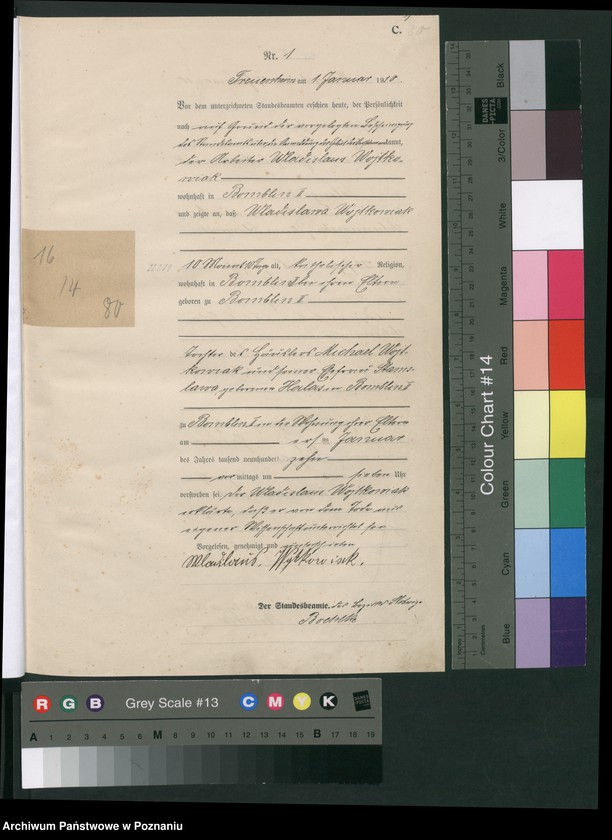 C.
Nr. 1
am 1 Januar 1910
Vor dem unterzeichneten Standesbeamten erschien heute, der Persönlichkeit
nach auf Grund der vorgelegten Bescheinigung
kannt,
der Arbeiter Wladislaus Wojtko-
wiak
wohnhaft in Bomblin II
und zeigte an, daß Wladislawa Wojtkowiak
10 Monate alt, katholischer Religion,
wohnhaft in Bomblin bei ihren Eltern
geboren zu Bomblin II
16
14
80
Tochter des Häuslers Michael Wojt-
kowiak und seiner Ehefrau Stanis-
lawa geborene in Bomblin II
zu Bomblin II in der Wohnung ihrer Eltern
am ersten Januar
des Jahres tausend neunhundert zehn
vor mittags um sieben Uhr
verstorben sei. Der Wladislaus Wojtkowiak
erklärte, daß er von dem Tode aus
eigener Wissenschaft unterrichtet sei
Vorgelesen, genehmigt und unterschrieben
Der Standesbeamte.
Colour Chart #14
Black
3/Color
White
Magenta
Red
Yellow
Green
Cyan
Blue
DANES
-PICTA
Inches
Centimetres
R G B Grey Scale #13 C M Y K
A 1 2 3 4 5 6 M 8 9 10 11 12 13 14 15 B 17 18 19
Archiwum Państwowe w Poznaniu